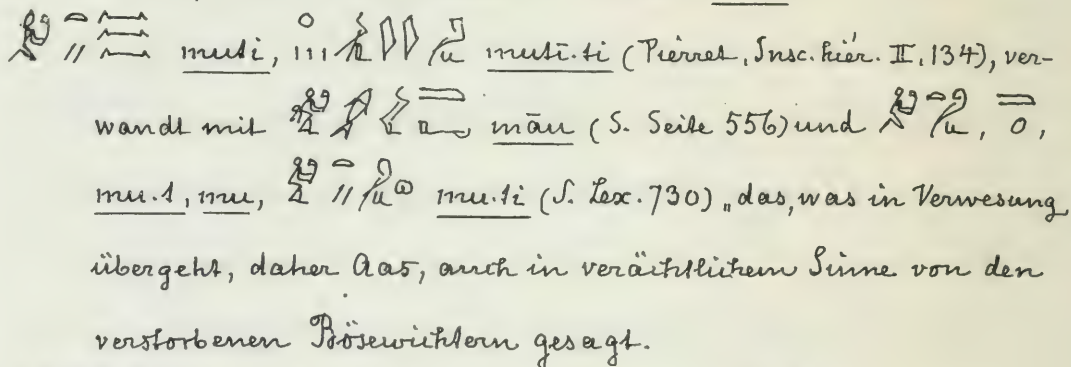 muti, muti.ti (Pierret, Insc. hiér. II, 134), ver-
wandt mit māu (S. Seite 556) und ,
mu.t, mu, mu.ti (S. Lex. 730) „das, was in Verwesung
übergeht, daher Aas, auch in verächtlichem Sinne von den
verstorbenen Bösewichtern gesagt.